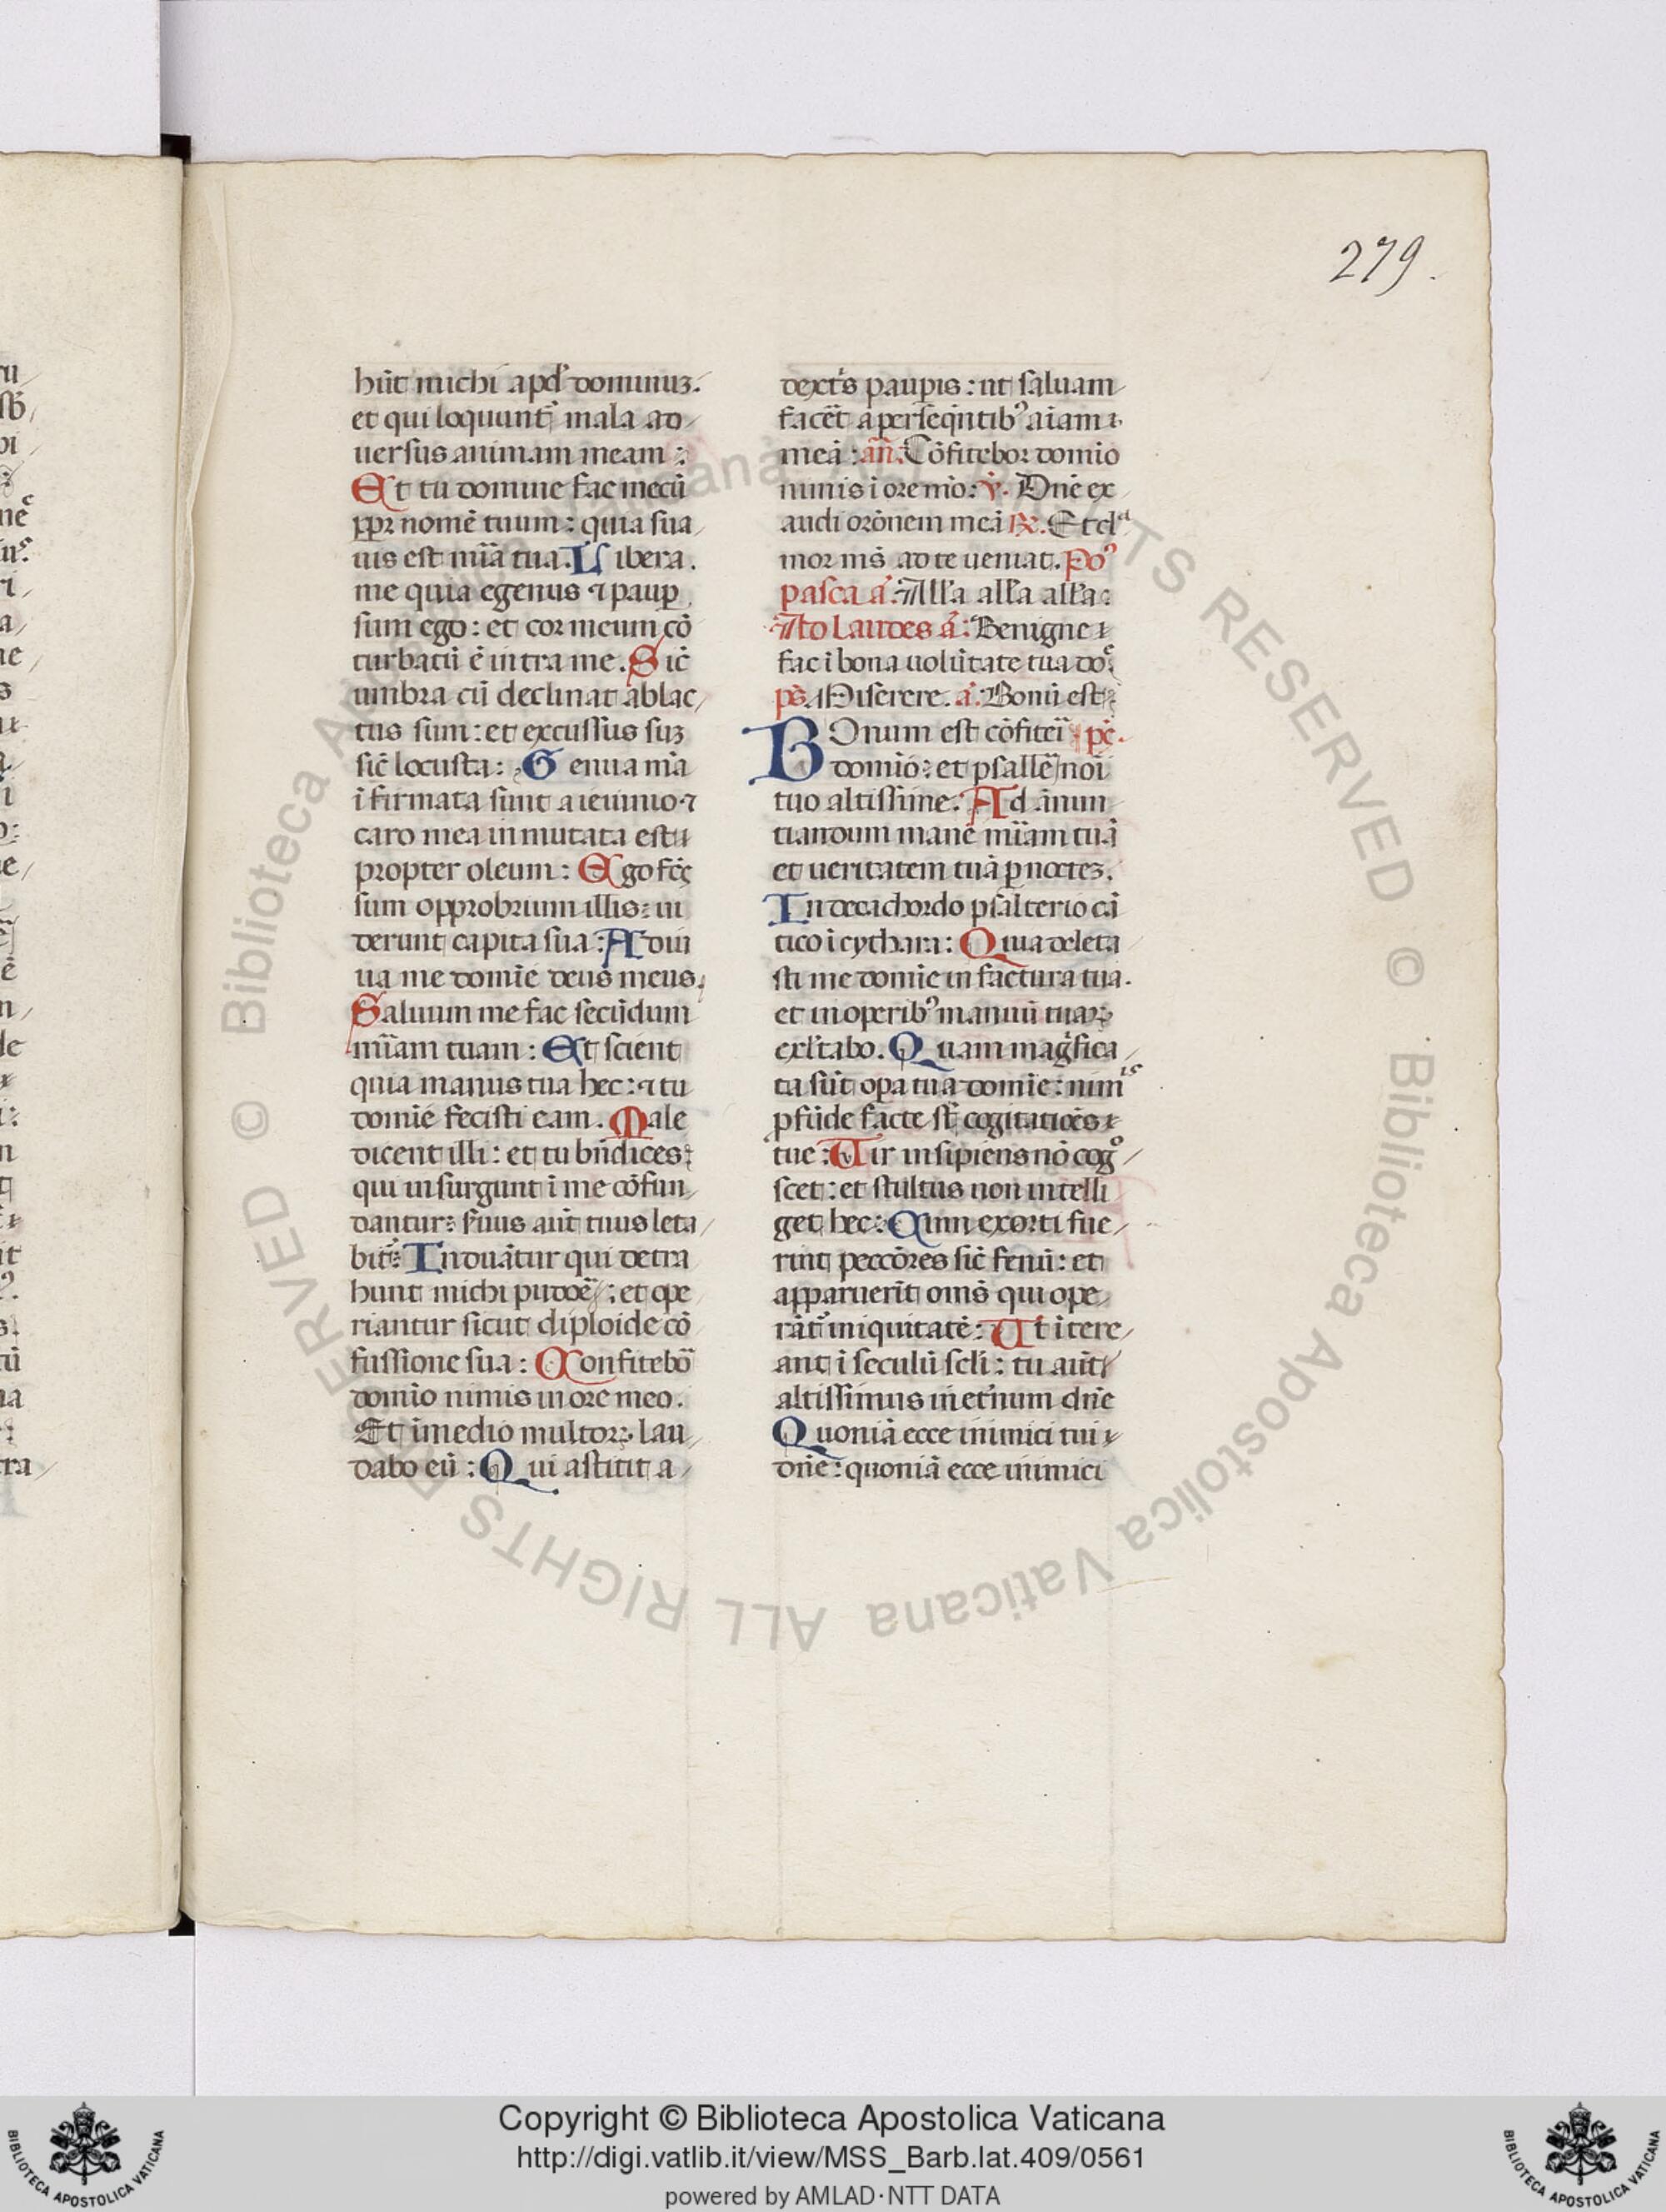 279.
hūt michi apd' dominuʒ.
et qui loquunt' mala ad
uersus animam meam :
Et tu domine fac mecū
ppr nomē tuum : quia sua
uis est mīa tua. Libera.
me quia egenus ⁊ paup
sum ego : et cor meum cō
turbatū ē intra me. Sic̄
umbra cū declinat ablac
tus sum : et excussus suʒ
sic̄ locusta : Genua mīa
īfirmata sunt a ieiunio ⁊
caro mea inmutata est
propter oleum : Ego fcs̄
sum opprobrium illis : ui
derunt capita sua : Adiu
ua me domīe deus meus.
Saluum me fac secūdum
mīam tuam : Et scient
quia manus tua hec : ⁊ tu
domīe fecisti eam. Male
dicent illi : et tu bn̄dices :
qui insurgunt ī me cōfun
dantur : suus aūt tuus leta
bit' : Induātur qui detra
hunt michi pudoē : et ope
riantur sicut diploide cō
fussione sua : Confitebō
domīo nimis in ore meo.
Et īmedio multoꝝ lau
dabo eū : Qui astitit a
dext's paupis : ut saluam
facēt a perseqntibꝰ aīam
meā : an̄. Cōfitebor domīo
nimis ī ore mō : ℣. Dn̄e ex
audi orōnem meā ℟. Et cla
mor ms̄ ad te ueniat. Poꝰ
pasca ā. All'a all'a all'a :
Ad laudes ā : Benigne
fac ī bona uolūtate tua doē
ps̄. Miserere. ā : Bonū est
Bonum est cōfiteī ps̄.
domīo : et psallē noī
tuo altissime. Ad ānun
tiandum mane mīam tuā
et ueritatem tuā p noctes.
In decachordo psalterio cā
tico ī cythara : Quia delecta
sti me domīe in factura tua.
et in operibꝰ manuū tuaꝝ
exl'tabo. Quam mag'fica
ta sūt opa tua domīe : nimis
pfūde facte st̄ cogitatiōes
tue : Uir insipiens nō cogo
scet : et stultus non intelli
get hec : Cum exorti fue
rint peccōres sic̄ fenū : et
apparuerīt oms̄ qui ope
rāt' iniquitatē : Ut ītere
ant ī seculū scl'i : tu aūt
altissimus in et'num dn̄e
Quoniā ecce inimici tui
dn̄e : quoniā ecce inimici
© Biblioteca Apostolica Vaticana ALL RIGHTS RESERVED
Copyright © Biblioteca Apostolica Vaticana
http://digi.vatlib.it/view/MSS_Barb.lat.409/0561
powered by AMLAD·NTT DATA
BIBLIOTECA APOSTOLICA VATICANA
BIBLIOTECA APOSTOLICA VATICANA